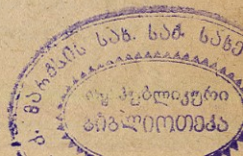 კ. მარქსის სახ. საქ. სახე
საჯ. პუბლიკური
ბიბლიოთეკა